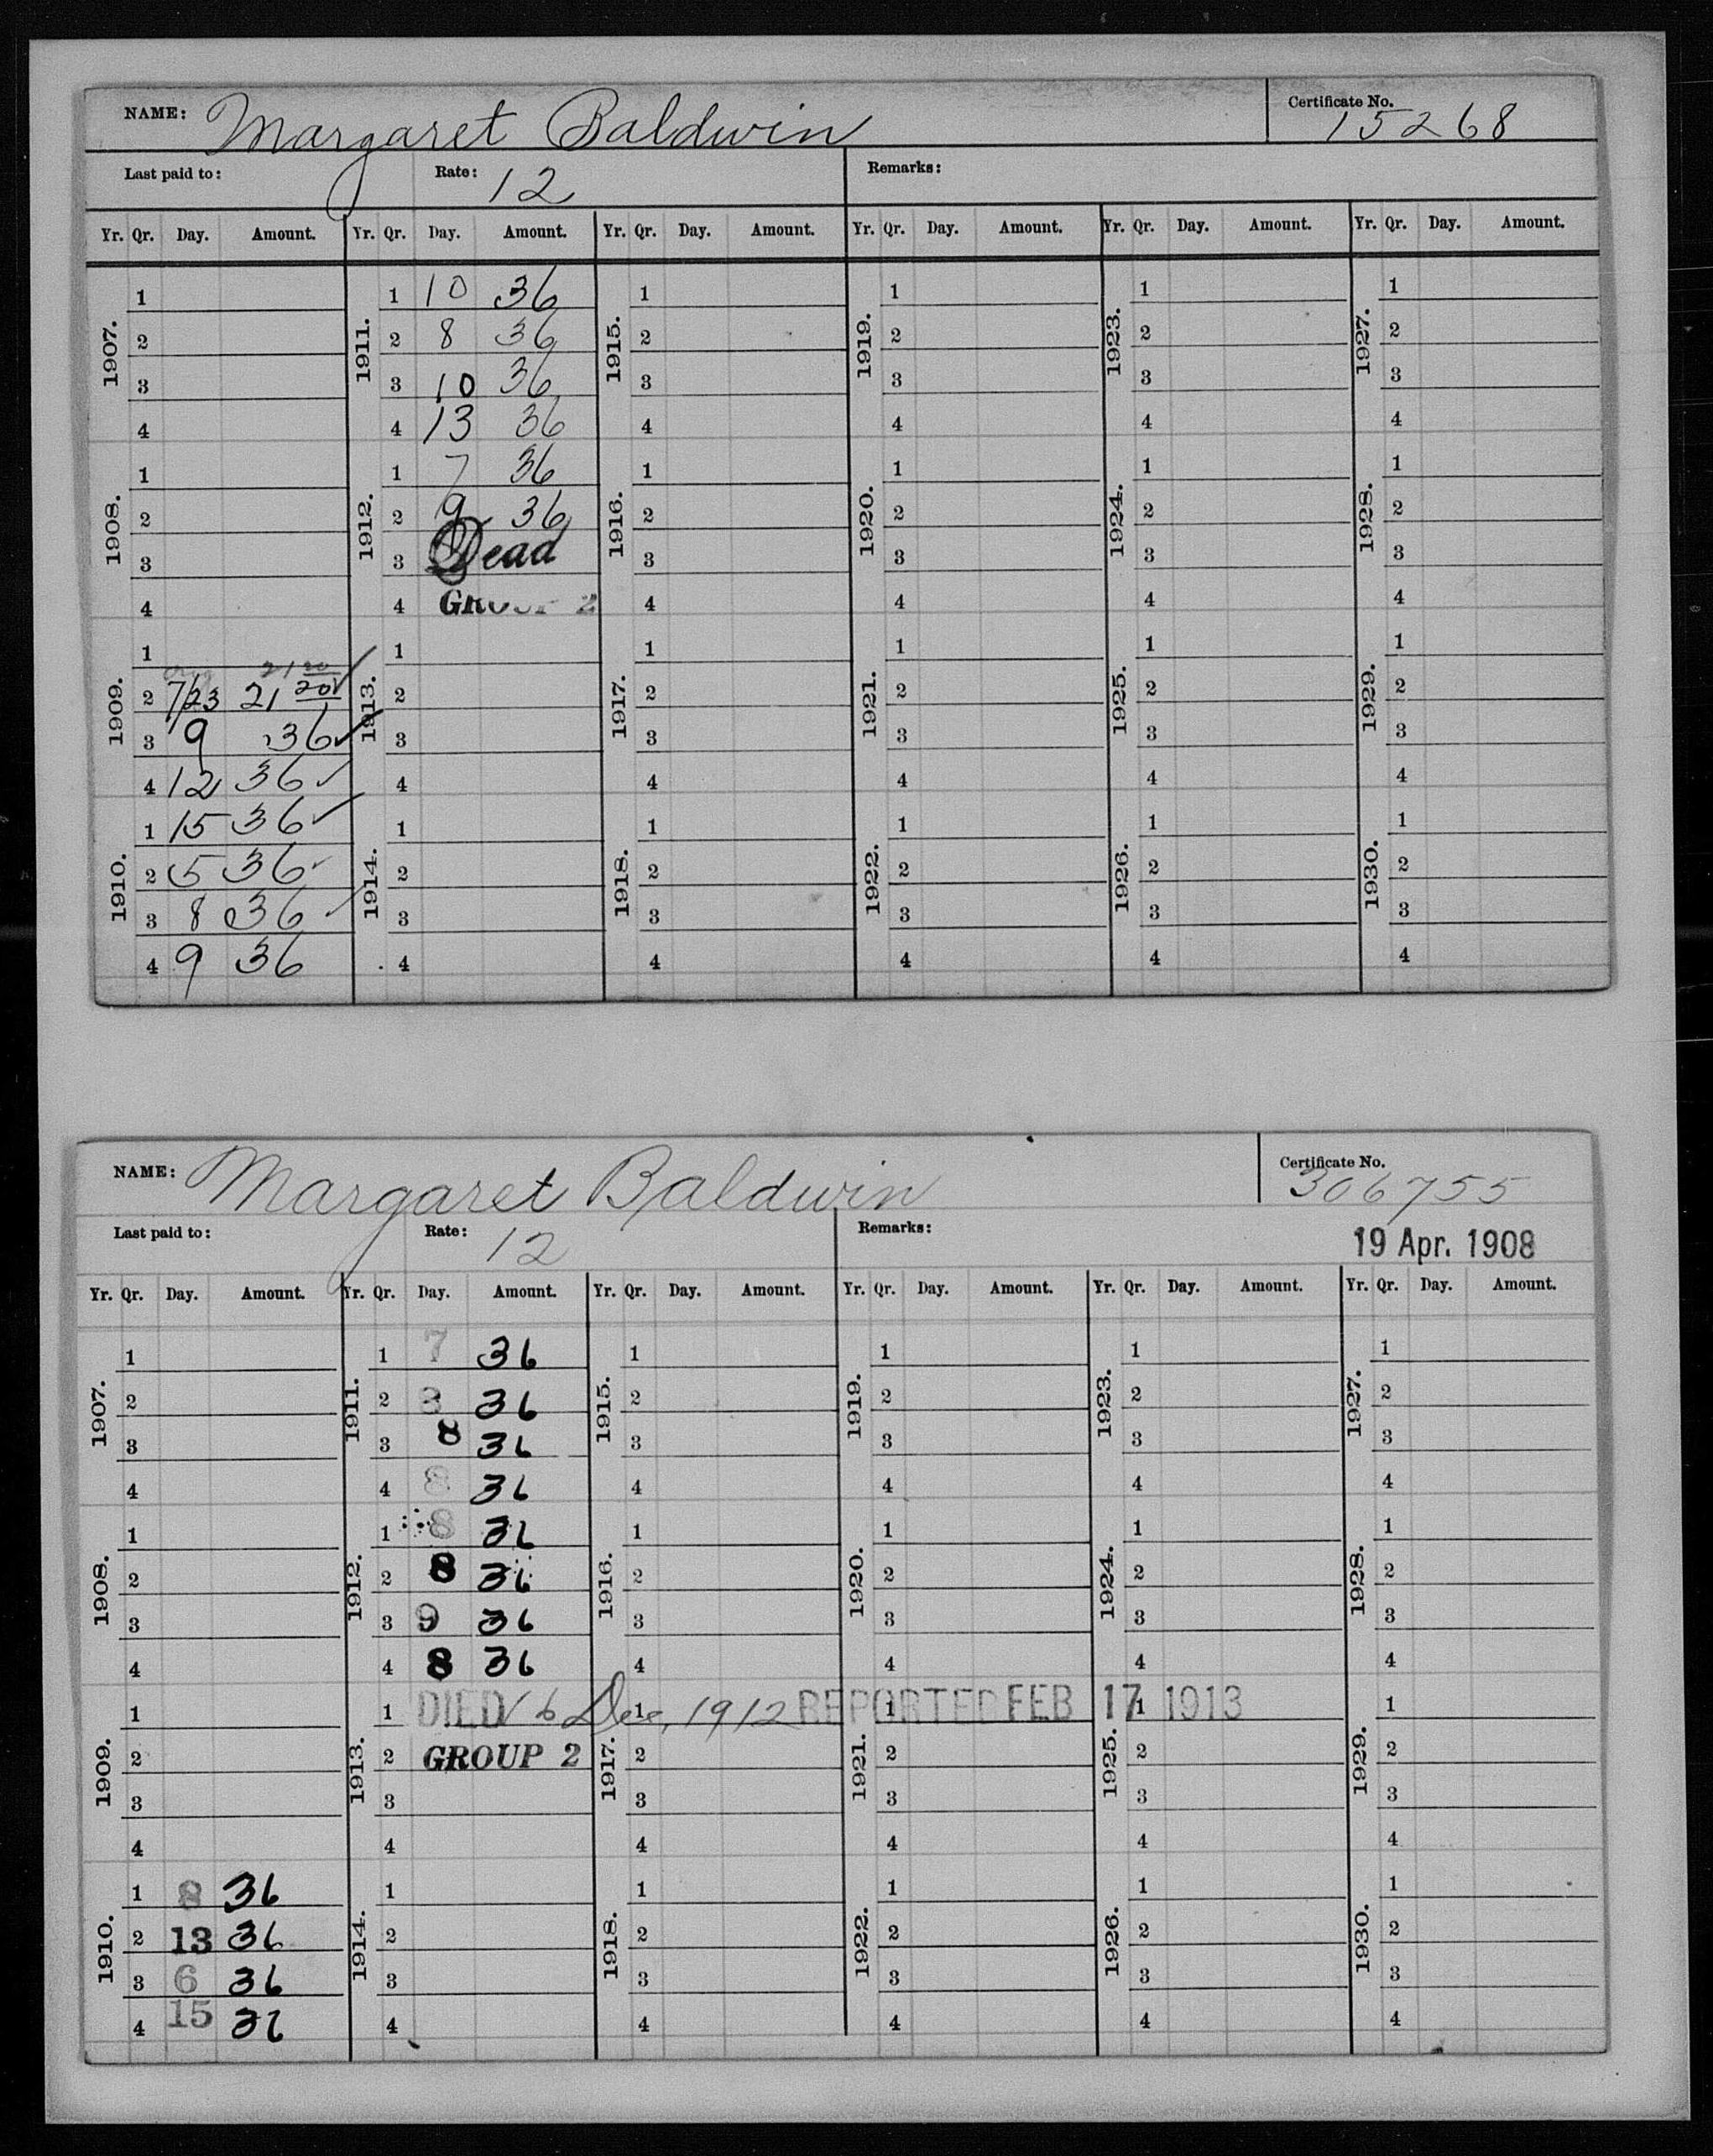 NAME: Margaret Baldwin Certificate No. 15268
Last paid to: Rate: 12 Remarks:
Yr. Qr. Day. Amount. Yr. Qr. Day. Amount. Yr. Qr. Day. Amount. Yr. Qr. Day. Amount. Yr. Qr. Day. Amount. Yr. Qr. Day. Amount.
1907. 1 1911. 1 10 36 1915. 1 1919. 1 1923. 1 1927. 1
2 2 8 36 2 2 2 2
3 3 10 36 3 3 3 3
4 4 13 36 4 4 4 4
1908. 1 1912. 1 7 36 1916. 1 1920. 1 1924. 1 1928. 1
2 2 9 36 2 2 2 2
3 3 Dead 3 3 3 3
4 4 GROUP 2 4 4 4 4
1909. 1 1913. 1 1917. 1 1921. 1 1925. 1 1929. 1
2 7/23 21 20 2 2 2 2 2
3 9 36 3 3 3 3 3
4 12 36 4 4 4 4 4
1910. 1 15 36 1914. 1 1918. 1 1922. 1 1926. 1 1930. 1
2 5 36 2 2 2 2 2
3 8 36 3 3 3 3 3
4 9 36 4 4 4 4 4
NAME: Margaret Baldwin Certificate No. 306755
Last paid to: Rate: 12 Remarks: 19 Apr. 1908
Yr. Qr. Day. Amount. Yr. Qr. Day. Amount. Yr. Qr. Day. Amount. Yr. Qr. Day. Amount. Yr. Qr. Day. Amount. Yr. Qr. Day. Amount.
1907. 1 1911. 1 7 36 1915. 1 1919. 1 1923. 1 1927. 1
2 2 8 36 2 2 2 2
3 3 8 36 3 3 3 3
4 4 8 36 4 4 4 4
1908. 1 1912. 1 8 36 1916. 1 1920. 1 1924. 1 1928. 1
2 2 8 36 2 2 2 2
3 3 9 36 3 3 3 3
4 4 8 36 4 4 4 4
1909. 1 1913. 1 DIED 6 Dec, 1912 REPORTED FEB 17 1913 1917. 1 1921. 1 1925. 1 1929. 1
2 2 GROUP 2 2 2 2 2
3 3 3 3 3 3
4 4 4 4 4 4
1910. 1 8 36 1914. 1 1918. 1 1922. 1 1926. 1 1930. 1
2 13 36 2 2 2 2 2
3 6 36 3 3 3 3 3
4 15 36 4 4 4 4 4